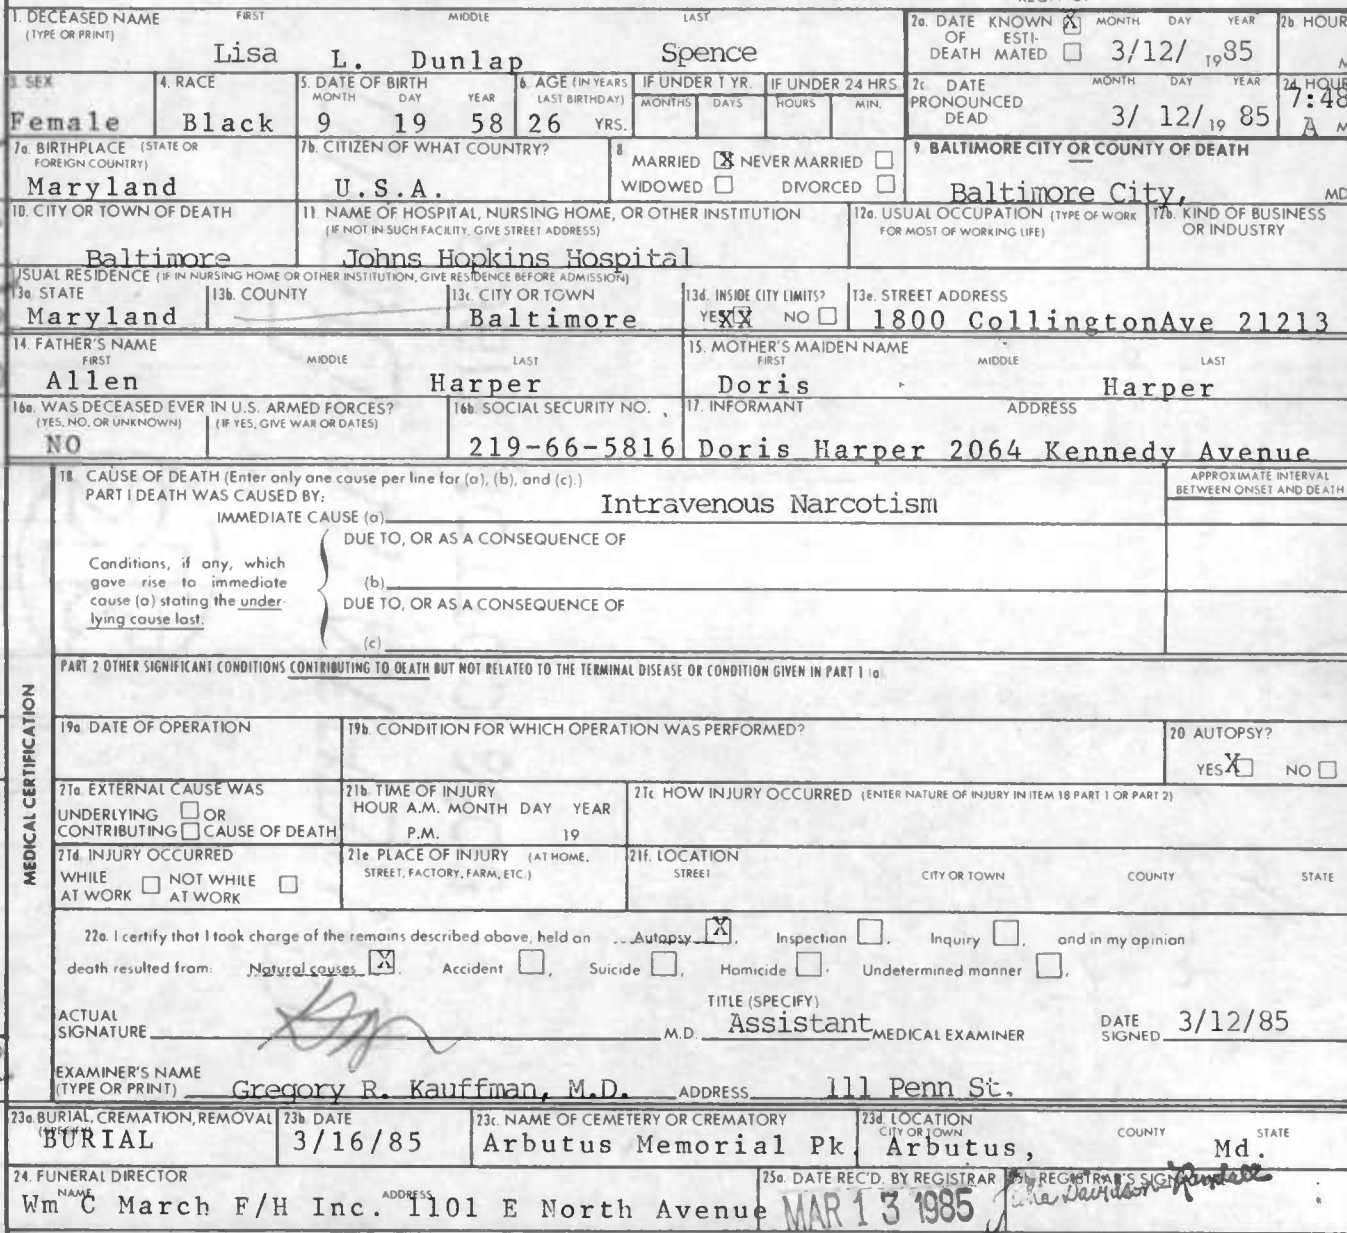 1. DECEASED NAME (TYPE OR PRINT) FIRST MIDDLE LAST
Lisa L. Dunlap Spence
2a. DATE OF DEATH KNOWN X ESTIMATED MONTH DAY YEAR
3/12/ 1985
2b. HOUR
3. SEX
Female
4. RACE
Black
5. DATE OF BIRTH MONTH DAY YEAR
9 19 58
6. AGE (IN YEARS LAST BIRTHDAY)
26 YRS.
IF UNDER 1 YR. MONTHS DAYS
IF UNDER 24 HRS HOURS MIN.
2c. DATE PRONOUNCED DEAD MONTH DAY YEAR
3/ 12/ 19 85
2d. HOUR
7:48
A M
7a. BIRTHPLACE (STATE OR FOREIGN COUNTRY)
Maryland
7b. CITIZEN OF WHAT COUNTRY?
U.S.A.
8 MARRIED X NEVER MARRIED
WIDOWED DIVORCED
9 BALTIMORE CITY OR COUNTY OF DEATH
Baltimore City, MD
10. CITY OR TOWN OF DEATH
Baltimore
11. NAME OF HOSPITAL, NURSING HOME, OR OTHER INSTITUTION
(IF NOT IN SUCH FACILITY, GIVE STREET ADDRESS)
Johns Hopkins Hospital
12a. USUAL OCCUPATION (TYPE OF WORK FOR MOST OF WORKING LIFE)
12b. KIND OF BUSINESS OR INDUSTRY
USUAL RESIDENCE (IF IN NURSING HOME OR OTHER INSTITUTION, GIVE RESIDENCE BEFORE ADMISSION)
13a STATE
Maryland
13b. COUNTY
13c. CITY OR TOWN
Baltimore
13d. INSIDE CITY LIMITS?
YES XX NO
13e. STREET ADDRESS
1800 CollingtonAve 21213
14. FATHER'S NAME FIRST MIDDLE LAST
Allen Harper
15. MOTHER'S MAIDEN NAME FIRST MIDDLE LAST
Doris Harper
16a. WAS DECEASED EVER IN U.S. ARMED FORCES?
(YES, NO, OR UNKNOWN) (IF YES, GIVE WAR OR DATES)
NO
16b. SOCIAL SECURITY NO.
219-66-5816
17. INFORMANT ADDRESS
Doris Harper 2064 Kennedy Avenue
18 CAUSE OF DEATH (Enter only one cause per line for (a), (b), and (c).)
PART I DEATH WAS CAUSED BY:
IMMEDIATE CAUSE (a) Intravenous Narcotism
APPROXIMATE INTERVAL BETWEEN ONSET AND DEATH
Conditions, if any, which gave rise to immediate cause (a) stating the underlying cause last.
DUE TO, OR AS A CONSEQUENCE OF
(b)
DUE TO, OR AS A CONSEQUENCE OF
(c)
PART 2 OTHER SIGNIFICANT CONDITIONS CONTRIBUTING TO DEATH BUT NOT RELATED TO THE TERMINAL DISEASE OR CONDITION GIVEN IN PART 1 (a).
MEDICAL CERTIFICATION
19a DATE OF OPERATION
19b. CONDITION FOR WHICH OPERATION WAS PERFORMED?
20 AUTOPSY?
YES X NO
21a. EXTERNAL CAUSE WAS
UNDERLYING OR
CONTRIBUTING CAUSE OF DEATH
21b TIME OF INJURY
HOUR A.M. MONTH DAY YEAR
P.M. 19
21c HOW INJURY OCCURRED (ENTER NATURE OF INJURY IN ITEM 18 PART 1 OR PART 2)
21d INJURY OCCURRED
WHILE AT WORK NOT WHILE AT WORK
21e PLACE OF INJURY (AT HOME, STREET, FACTORY, FARM, ETC.)
21f. LOCATION
STREET CITY OR TOWN COUNTY STATE
22a. I certify that I took charge of the remains described above, held an Autopsy X, Inspection , Inquiry , and in my opinion
death resulted from: Natural causes X. Accident , Suicide , Homicide . Undetermined manner .
ACTUAL SIGNATURE M.D.
TITLE (SPECIFY)
Assistant MEDICAL EXAMINER
DATE SIGNED 3/12/85
EXAMINER'S NAME (TYPE OR PRINT) Gregory R. Kauffman, M.D. ADDRESS 111 Penn St.
23a. BURIAL, CREMATION, REMOVAL
BURIAL
23b DATE
3/16/85
23c. NAME OF CEMETERY OR CREMATORY
Arbutus Memorial Pk
23d. LOCATION CITY OR TOWN COUNTY STATE
Arbutus, Md.
24. FUNERAL DIRECTOR
NAME ADDRESS
Wm C March F/H Inc. 1101 E North Avenue
25a. DATE REC'D. BY REGISTRAR
MAR 13 1985
REGISTRAR'S SIGN
Davidson Randall